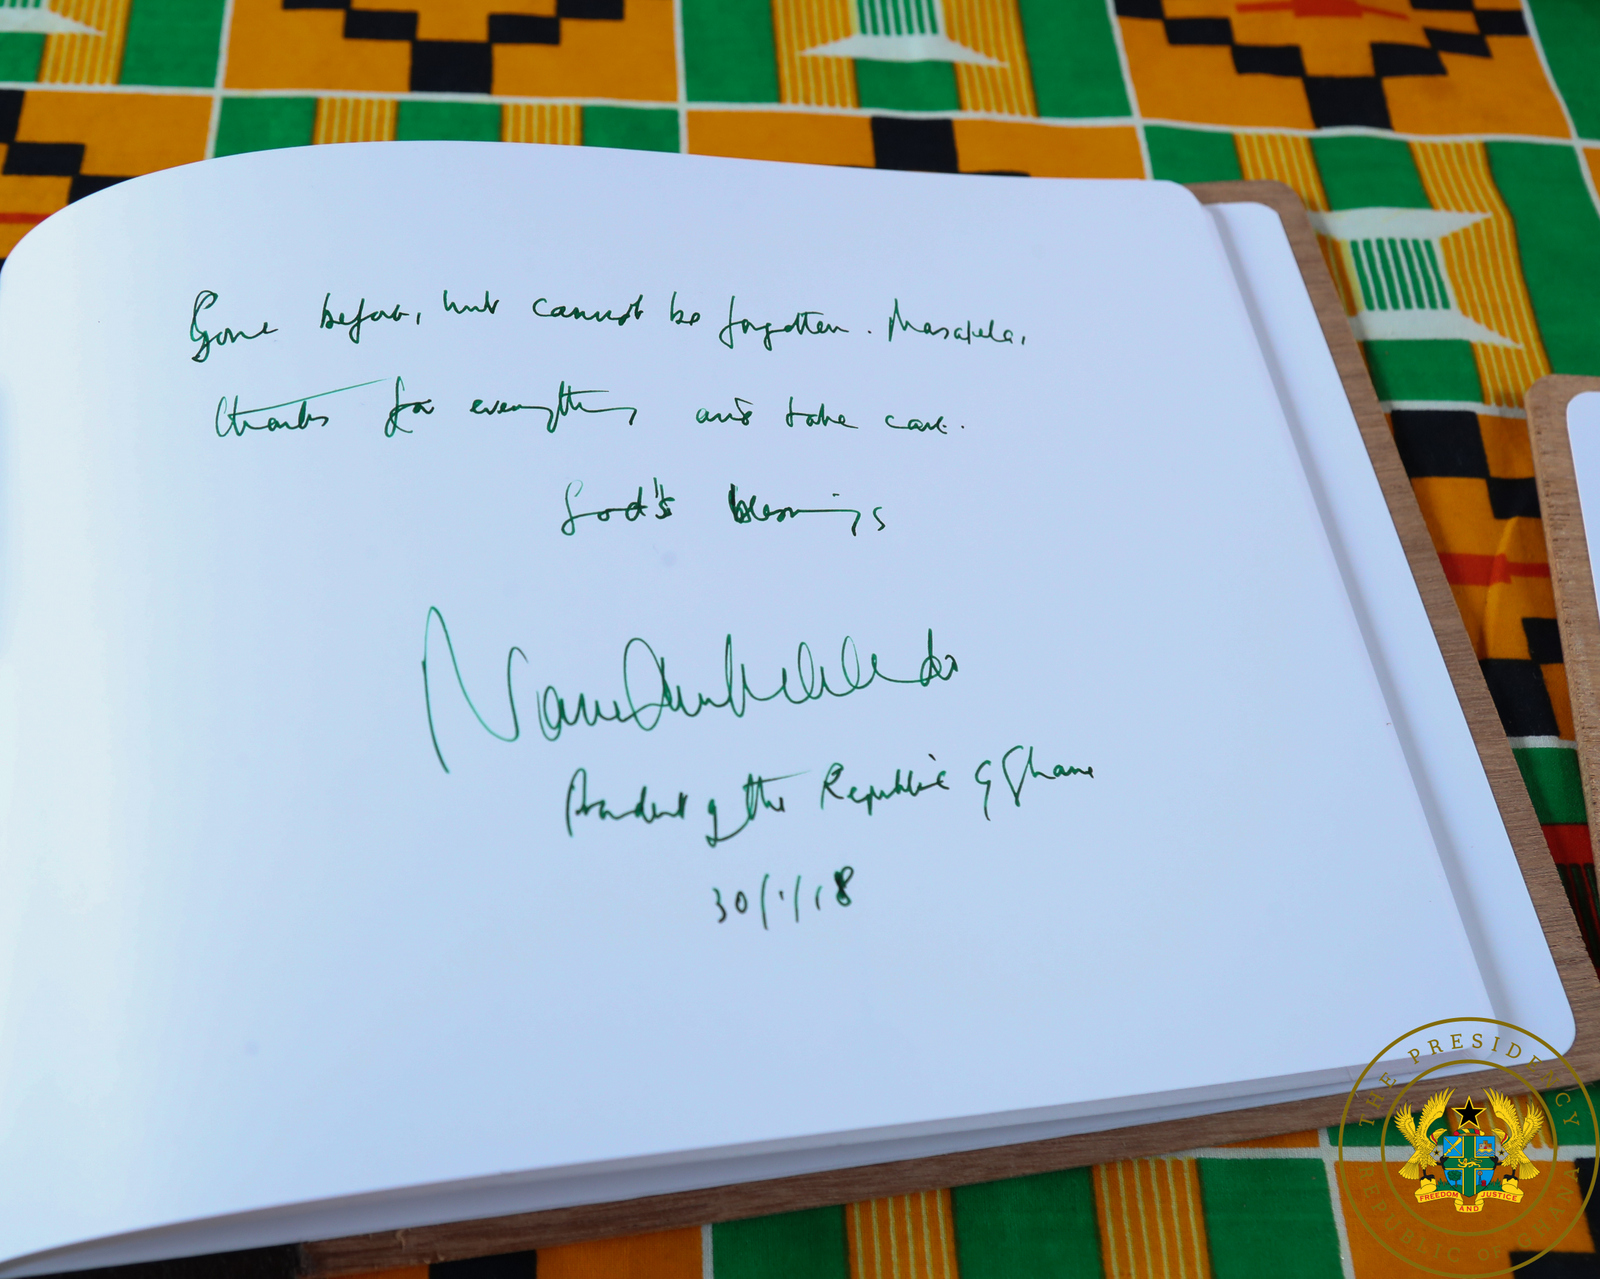 Gone before, but cannot be forgotten. Masapela,
thanks for everything and take care.
God's blessings
President of the Republic of Ghana
30/1/18
THE PRESIDENCY
REPUBLIC OF GHANA
FREEDOM AND JUSTICE